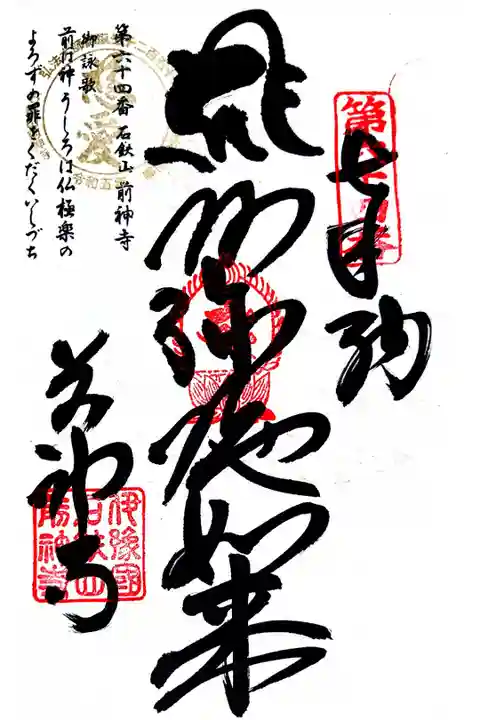 第六十四番
奉納
阿弥陀如来
前神寺
伊豫國
石鈇山
前神寺
第六十四番 石鈇山 前神寺
御詠歌
前は神 うしろは仏 極楽の
よろずの罪をくだくいしづち